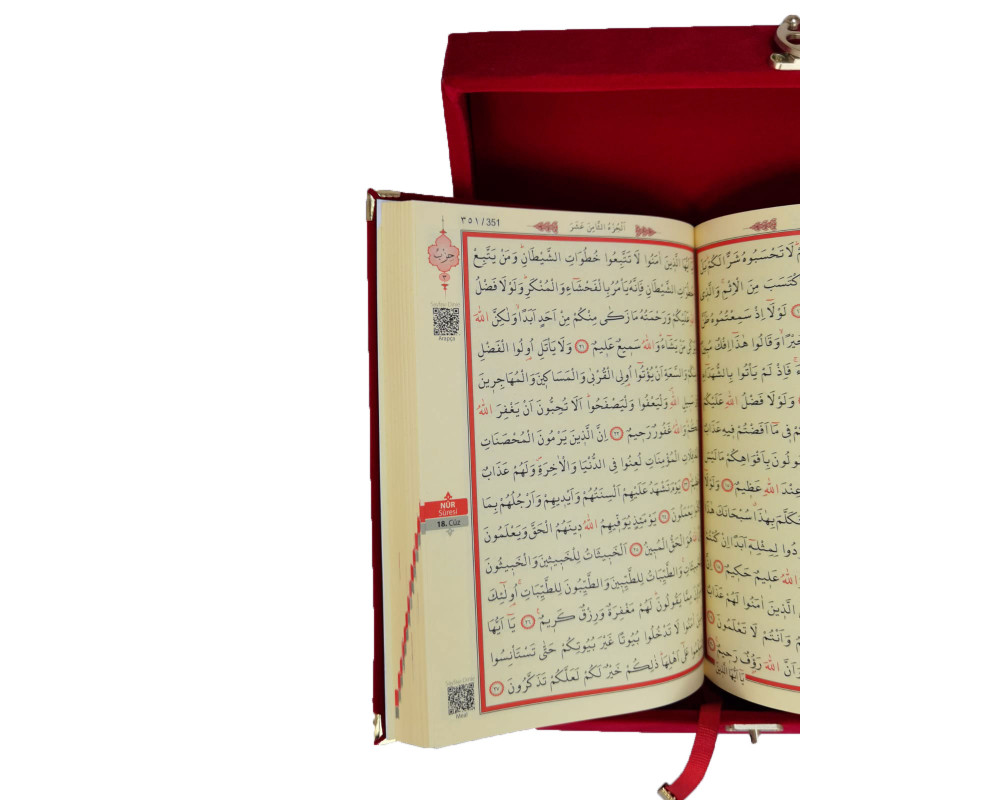 ٣٥١ / 351
اَلْجُزْءُ الثَّامِنَ عَشَرَ
حِزْبُ
٢
Sayfayı Dinle
Arapça
يَٓا اَيُّهَا الَّذ۪ينَ اٰمَنُوا لَا تَتَّبِعُوا خُطُوَاتِ الشَّيْطَانِۜ وَمَنْ يَتَّبِعْ
خُطُوَاتِ الشَّيْطَانِ فَاِنَّهُ يَأْمُرُ بِالْفَحْشَٓاءِ وَالْمُنْكَرِۜ وَلَوْلَا فَضْلُ
اللّٰهِ عَلَيْكُمْ وَرَحْمَتُهُ مَا زَكٰى مِنْكُمْ مِنْ اَحَدٍ اَبَداًۙ وَلٰكِنَّ اللّٰهَ
يُزَكّ۪ي مَنْ يَشَٓاءُۜ وَاللّٰهُ سَم۪يعٌ عَل۪يمٌ ﴿٢١﴾ وَلَا يَأْتَلِ اُو۬لُوا الْفَضْلِ
مِنْكُمْ وَالسَّعَةِ اَنْ يُؤْتُٓوا اُو۬لِي الْقُرْبٰى وَالْمَسَاك۪ينَ وَالْمُهَاجِر۪ينَ
ف۪ي سَب۪يلِ اللّٰهِۖ وَلْيَعْفُوا وَلْيَصْفَحُواۜ اَلَا تُحِبُّونَ اَنْ يَغْفِرَ اللّٰهُ
لَكُمْۜ وَاللّٰهُ غَفُورٌ رَح۪يمٌ ﴿٢٢﴾ اِنَّ الَّذ۪ينَ يَرْمُونَ الْمُحْصَنَاتِ
الْغَافِلَاتِ الْمُؤْمِنَاتِ لُعِنُوا فِي الدُّنْيَا وَالْاٰخِرَةِۖ وَلَهُمْ عَذَابٌ
عَظ۪يمٌۙ ﴿٢٣﴾ يَوْمَ تَشْهَدُ عَلَيْهِمْ اَلْسِنَتُهُمْ وَاَيْد۪يهِمْ وَاَرْجُلُهُمْ بِمَا
كَانُوا يَعْمَلُونَ ﴿٢٤﴾ يَوْمَئِذٍ يُوَفّ۪يهِمُ اللّٰهُ د۪ينَهُمُ الْحَقَّ وَيَعْلَمُونَ
اَنَّ اللّٰهَ هُوَ الْحَقُّ الْمُب۪ينُ ﴿٢٥﴾ اَلْخَب۪يثَاتُ لِلْخَب۪يث۪ينَ وَالْخَب۪يثُونَ
لِلْخَب۪يثَاتِۚ وَالطَّيِّبَاتُ لِلطَّيِّب۪ينَ وَالطَّيِّبُونَ لِلطَّيِّبَاتِۚ اُو۬لٰٓئِكَ
مُبَرَّؤُ۫نَ مِمَّا يَقُولُونَۜ لَهُمْ مَغْفِرَةٌ وَرِزْقٌ كَر۪يمٌ۟ ﴿٢٦﴾ يَٓا اَيُّهَا
الَّذ۪ينَ اٰمَنُوا لَا تَدْخُلُوا بُيُوتاً غَيْرَ بُيُوتِكُمْ حَتّٰى تَسْتَأْنِسُوا
وَتُسَلِّمُوا عَلٰٓى اَهْلِهَاۜ ذٰلِكُمْ خَيْرٌ لَكُمْ لَعَلَّكُمْ تَذَكَّرُونَ ﴿٢٧﴾
NÛR
Sûresi
18. Cüz
Sayfayı Dinle
Meal
لَا تَحْسَبُوهُ شَراًّ لَكُمْۜ بَلْ
اكْتَسَبَ مِنَ الْاِثْمِۚ وَالَّذ۪ي
لَوْلَٓا اِذْ سَمِعْتُمُوهُ ظَنَّ
خَيْراًۙ وَقَالُوا هٰذَٓا اِفْكٌ مُب۪ينٌ
فَاِذْ لَمْ يَأْتُوا بِالشُّهَدَٓاءِ
وَلَوْلَا فَضْلُ اللّٰهِ عَلَيْكُمْ
ف۪ي مَٓا اَفَضْتُمْ ف۪يهِ عَذَابٌ
بِاَفْوَاهِكُمْ مَا لَيْسَ
عِنْدَ اللّٰهِ عَظ۪يمٌ وَلَوْلَٓا
نَتَكَلَّمَ بِهٰذَاۗ سُبْحَانَكَ هٰذَا
لِمِثْلِه۪ٓ اَبَداً اِنْ كُنْتُمْ
وَاللّٰهُ عَل۪يمٌ حَك۪يمٌ اِنَّ
الَّذ۪ينَ اٰمَنُوا لَهُمْ عَذَابٌ
وَاَنْتُمْ لَا تَعْلَمُونَ
وَاَنَّ اللّٰهَ رَؤُ۫فٌ رَح۪يمٌ۟
يَٓا اَيُّهَا الَّذ۪ينَ